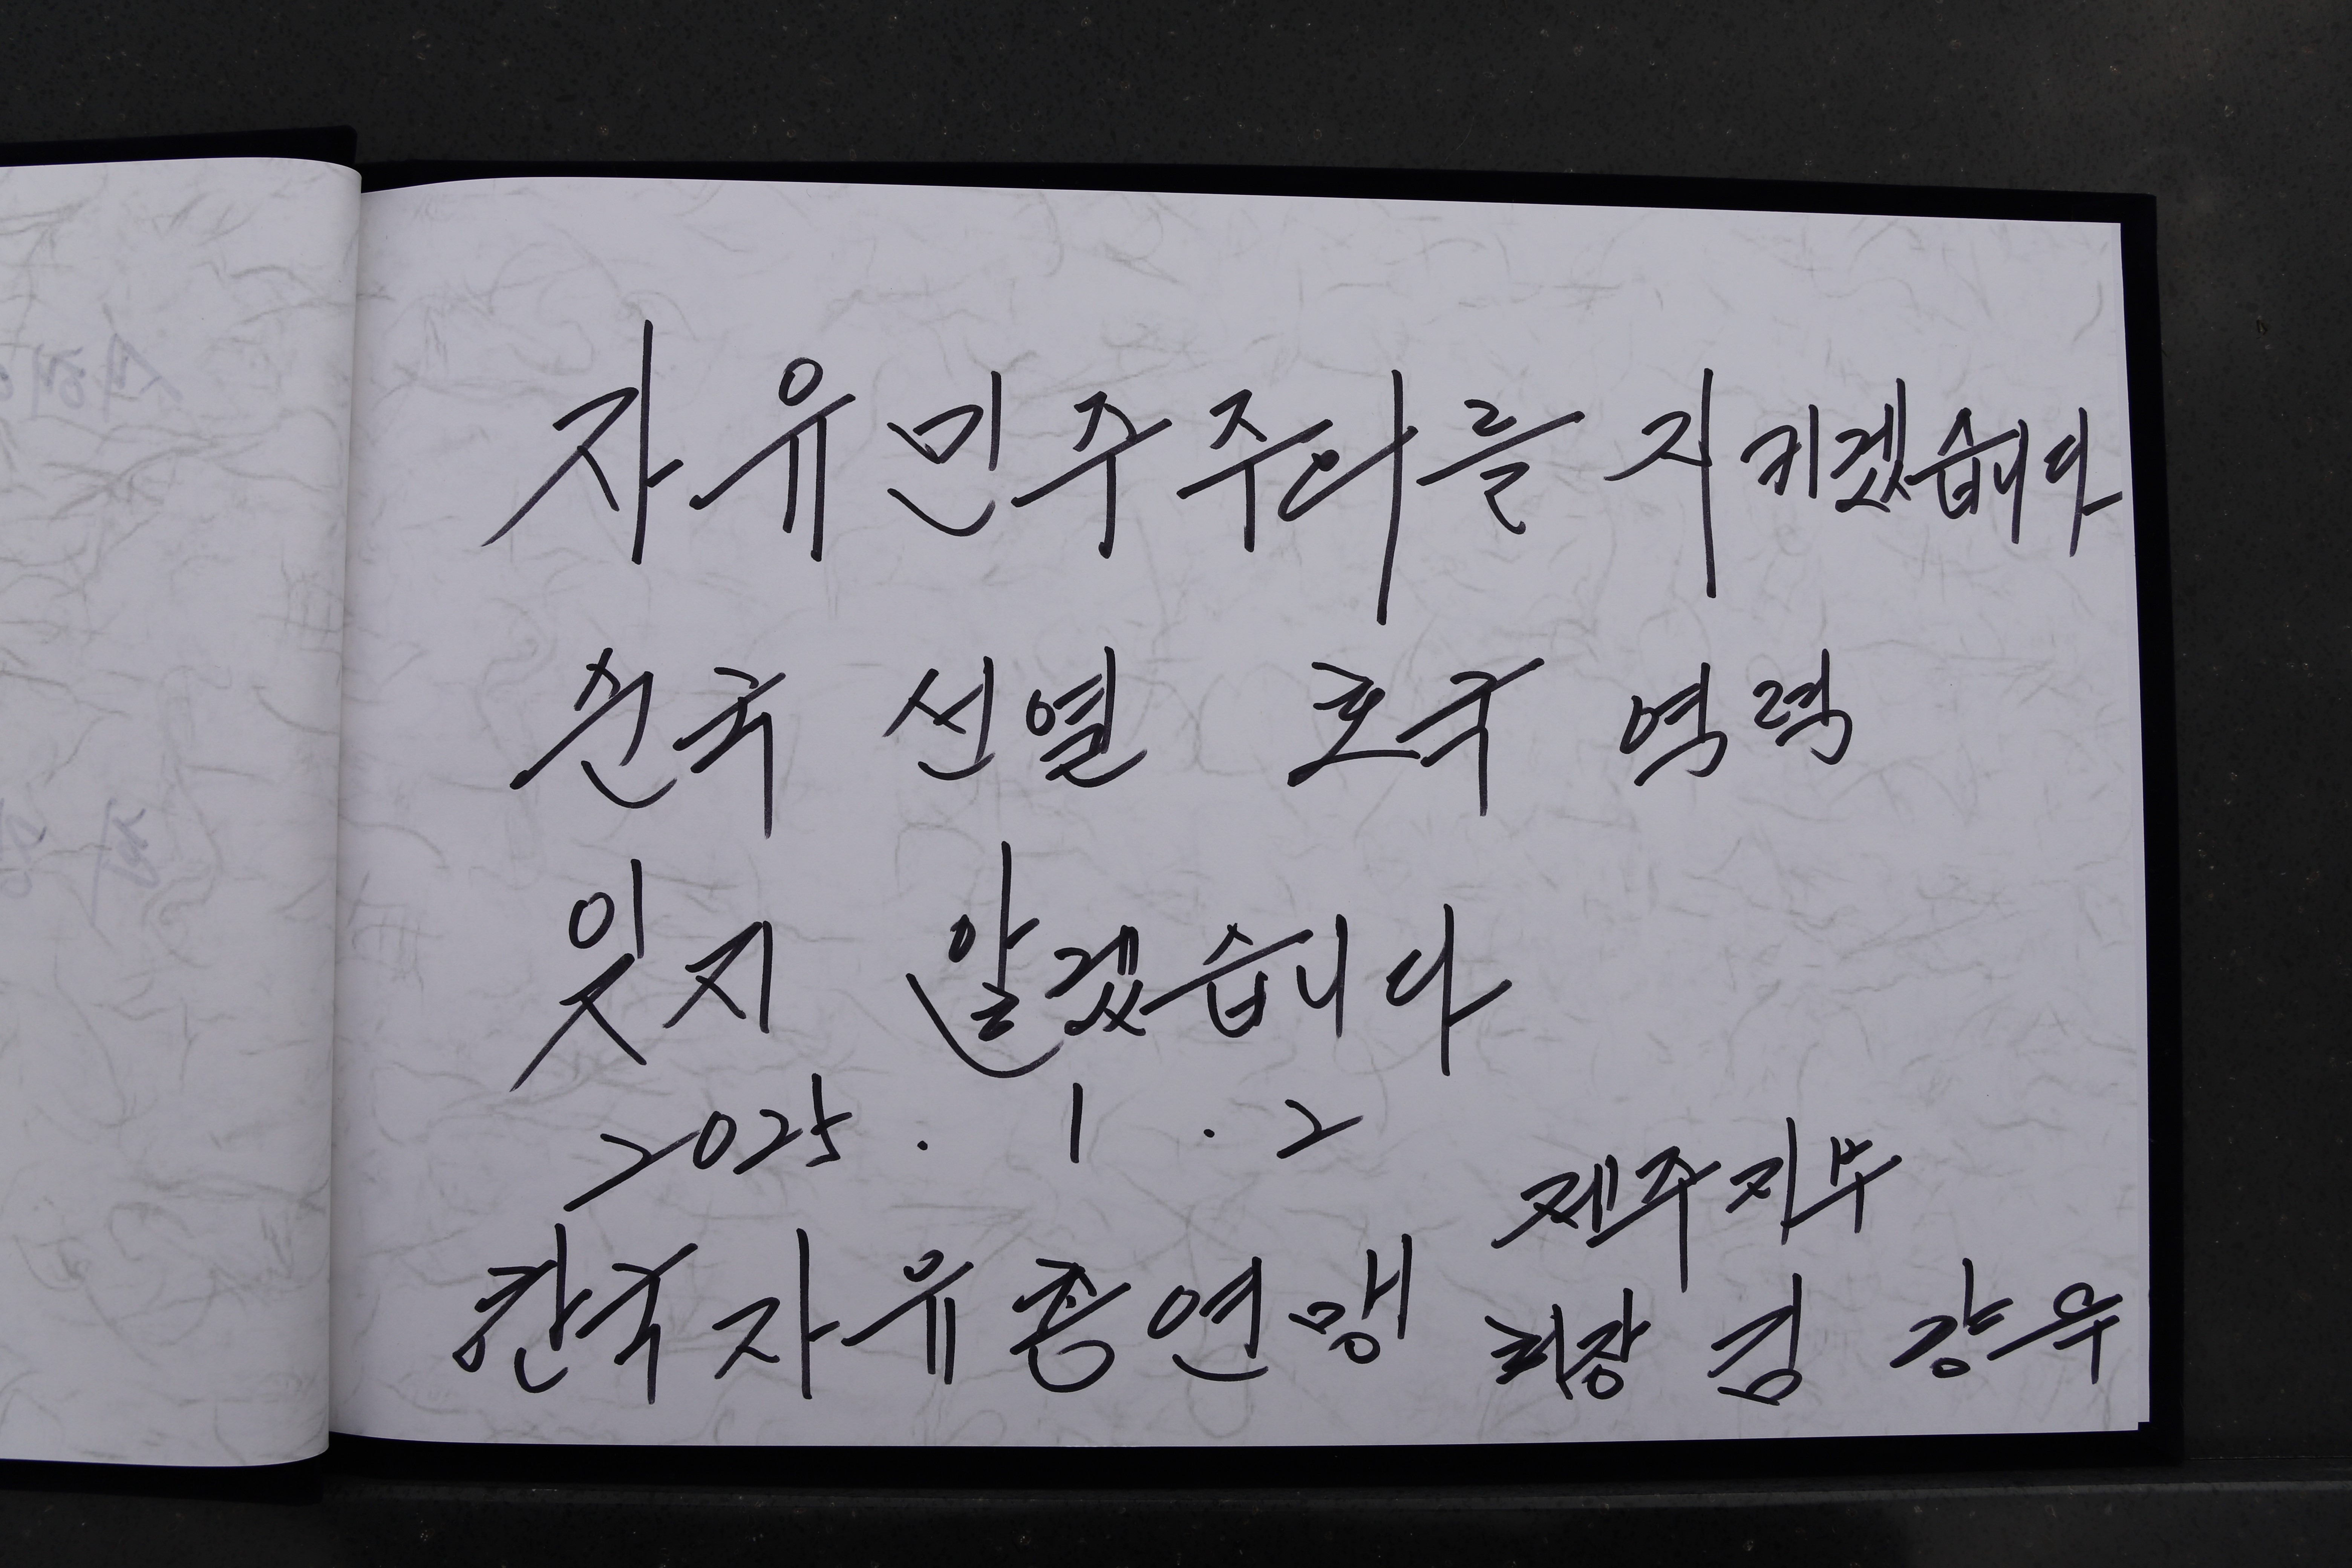 자유민주주의를 지키겠습니다
순국 선열 호국 영령
잊지 않겠습니다
2025. 1. 2
제주지부
한국자유총연맹 회장 김